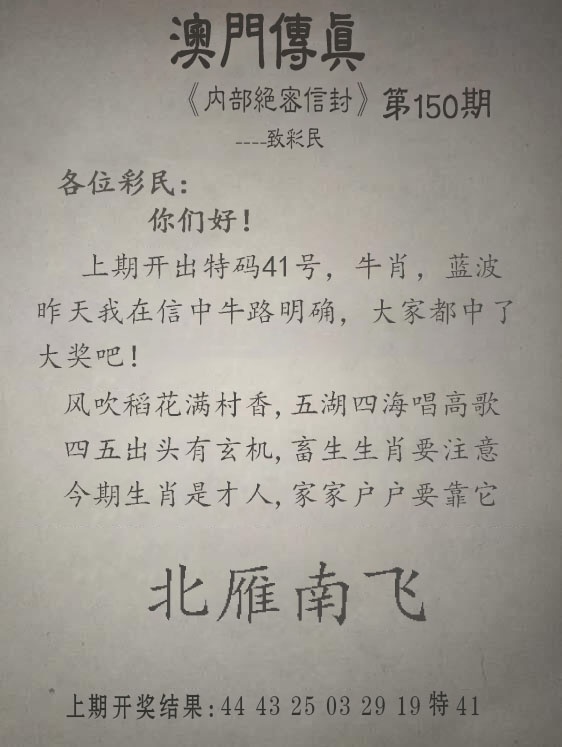 澳門傳眞
《内部絕密信封》第150期
----致彩民
各位彩民：
你们好！
上期开出特码41号，牛肖，蓝波
昨天我在信中牛路明确，大家都中了
大奖吧！
风吹稻花满村香,五湖四海唱高歌
四五出头有玄机,畜生生肖要注意
今期生肖是才人,家家户户要靠它
北雁南飞
上期开奖结果:44 43 25 03 29 19 特 41